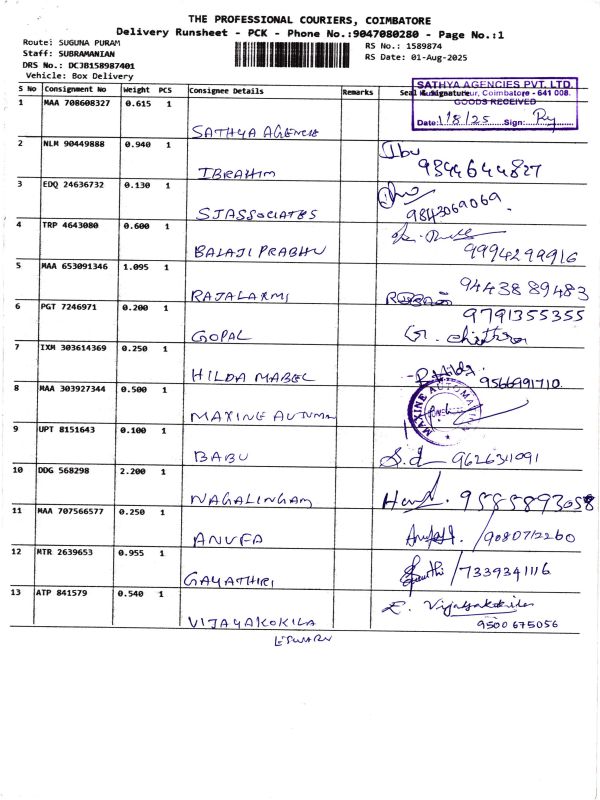 THE PROFESSIONAL COURIERS, COIMBATORE
Delivery Runsheet - PCK - Phone No.:9047080280 - Page No.:1
Route: SUGUNA PURAM
Staff: SUBRAMANIAN
DRS No.: DCJB158987401
Vehicle: Box Delivery
RS No.: 1589874
RS Date: 01-Aug-2025
S No Consignment No Weight PCS Consignee Details Remarks Seal & Signature
SATHYA AGENCIES PVT. LTD.
Coimbatore - 641 008.
GOODS RECEIVED
Date: 1/8/25 Sign:
1 MAA 708608327 0.615 1
SATHYA AGENCIE
2 NLM 90449888 0.940 1 Ibu
IBRAHIM 9844644827
3 EDQ 24636732 0.130 1
SJASSOCIATES 9843069069
4 TRP 4643080 0.600 1
BALAJI PRABHU 9994299916
5 MAA 653091346 1.095 1
RAJALAXMI 9443889483
6 PGT 7246971 0.200 1 9791355355
GOPAL
7 IXM 303614369 0.250 1
HILDA MABEL 9566991710
8 MAA 303927344 0.500 1
MAXINE AUTOMA
MAXINE AUTOMATI
9 UPT 8151643 0.100 1
BABU S.d 9626341091
10 DDG 568298 2.200 1
NAGALINGAM 9585893058
11 MAA 707566577 0.250 1
ANUFA /9080712260
12 MTR 2639653 0.955 1
GAYATHIRI /7339341116
13 ATP 841579 0.540 1
VIJAYAKOKILA 9500675056
ESWARN